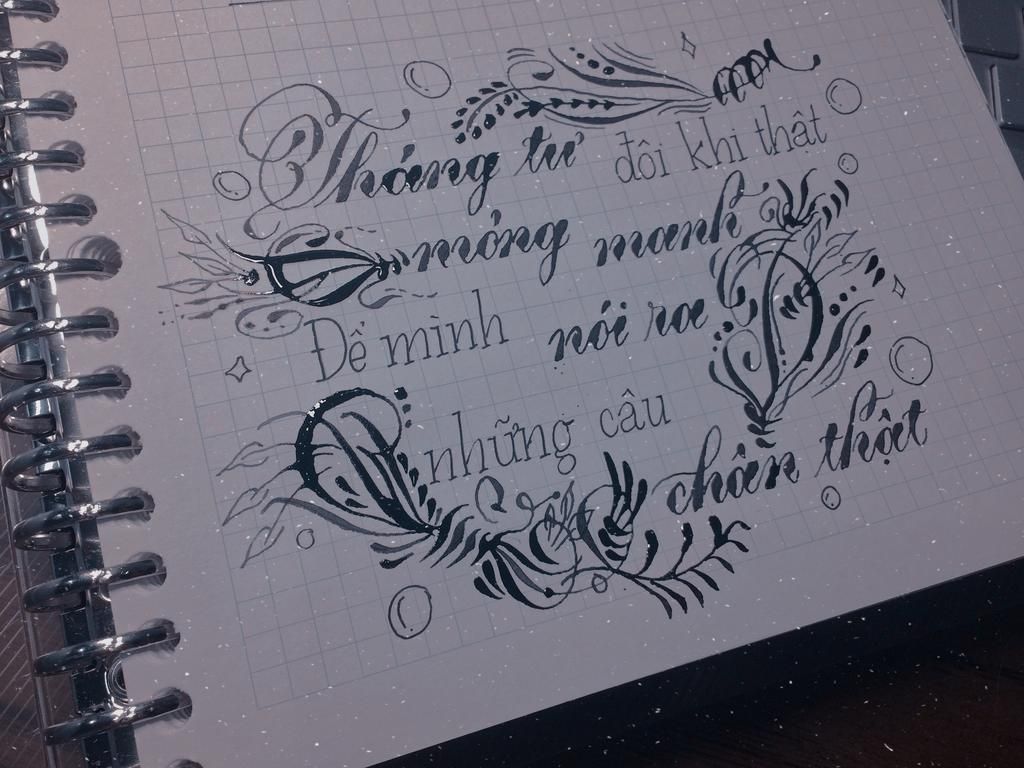 Tháng tư đôi khi thật
mỏng manh
Để mình nói ra
những câu
chân thật